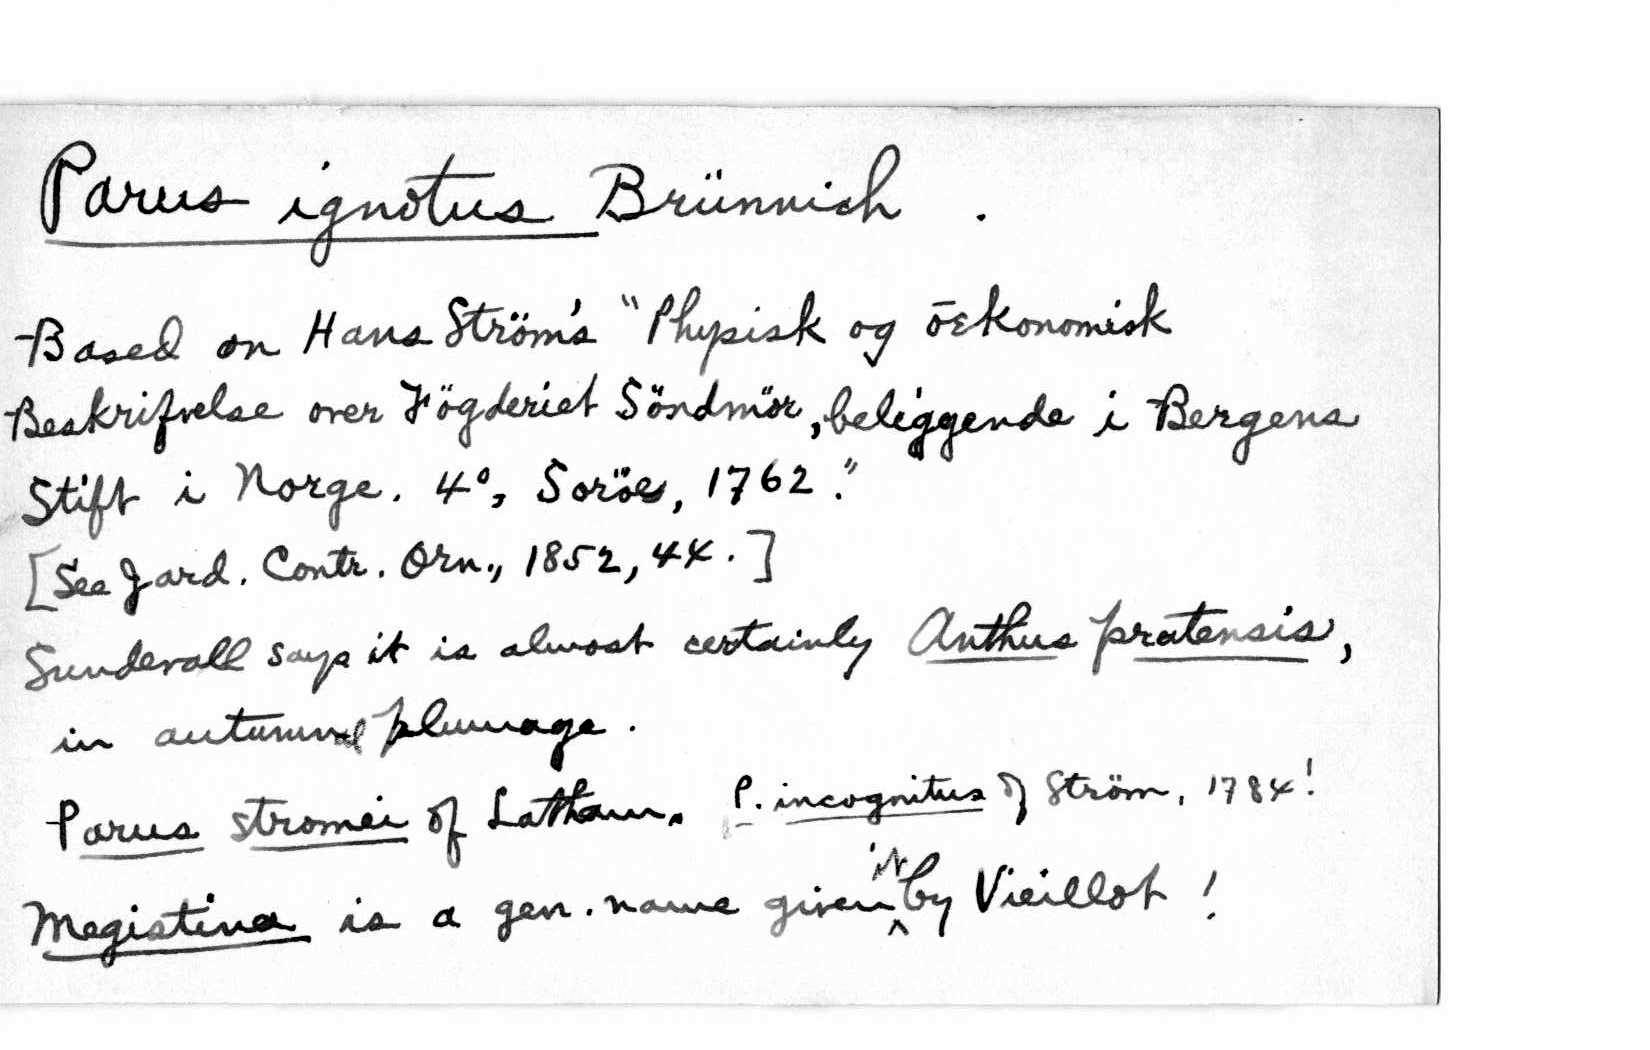 Parus ignotus Brünnich .
Based on Hans Ström's "Physisk og ōekonomisk
Beskrifvelse over Fögderiet Söndmör, beliggende i Bergens
Stift i Norge. 4°, Soröe, 1762."
[See Jard. Contr. Orn., 1852, 44.]
Sundevall says it is almost certainly Anthus pratensis,
in autumnal plumage.
Parus stromei of Latham. P. incognitus of Ström, 1784!
Megistina is a gen. name given it by Vieillot!